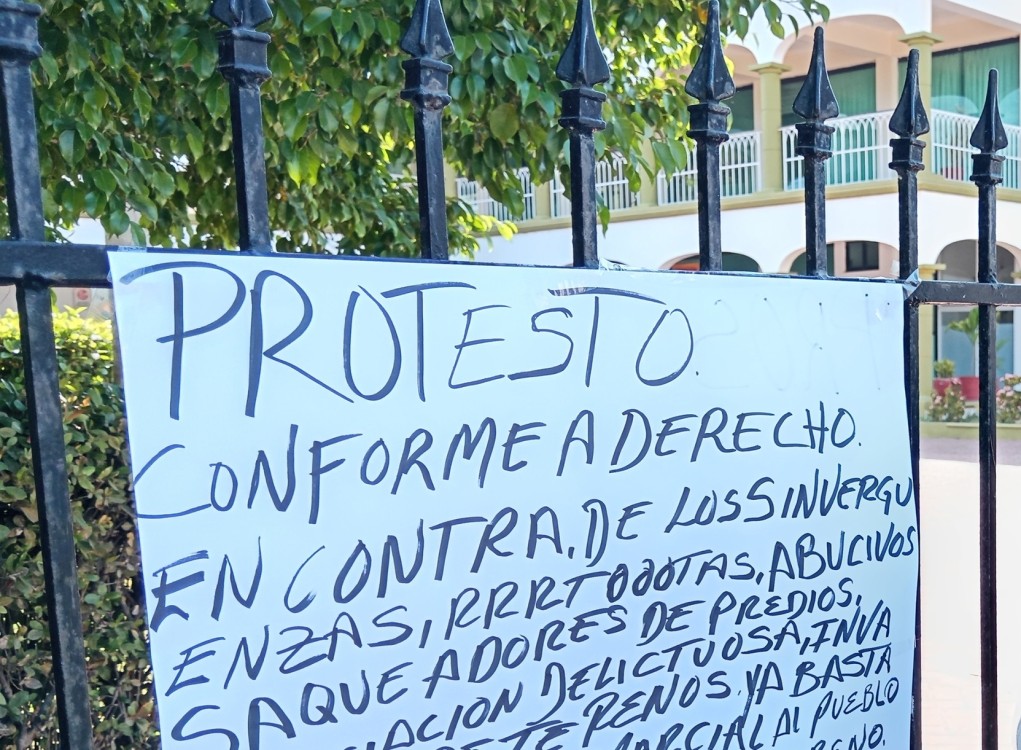 PROTESTO.
CONFORME A DERECHO.
EN CONTRA, DE LOS SINVERGU
ENZAS, RRRTOOOTAS, ABUCIVOS
SAQUEADORES DE PREDIOS,
DELICTUOSA, INVA
TERENOS. YA BASTA
AL PUEBLO